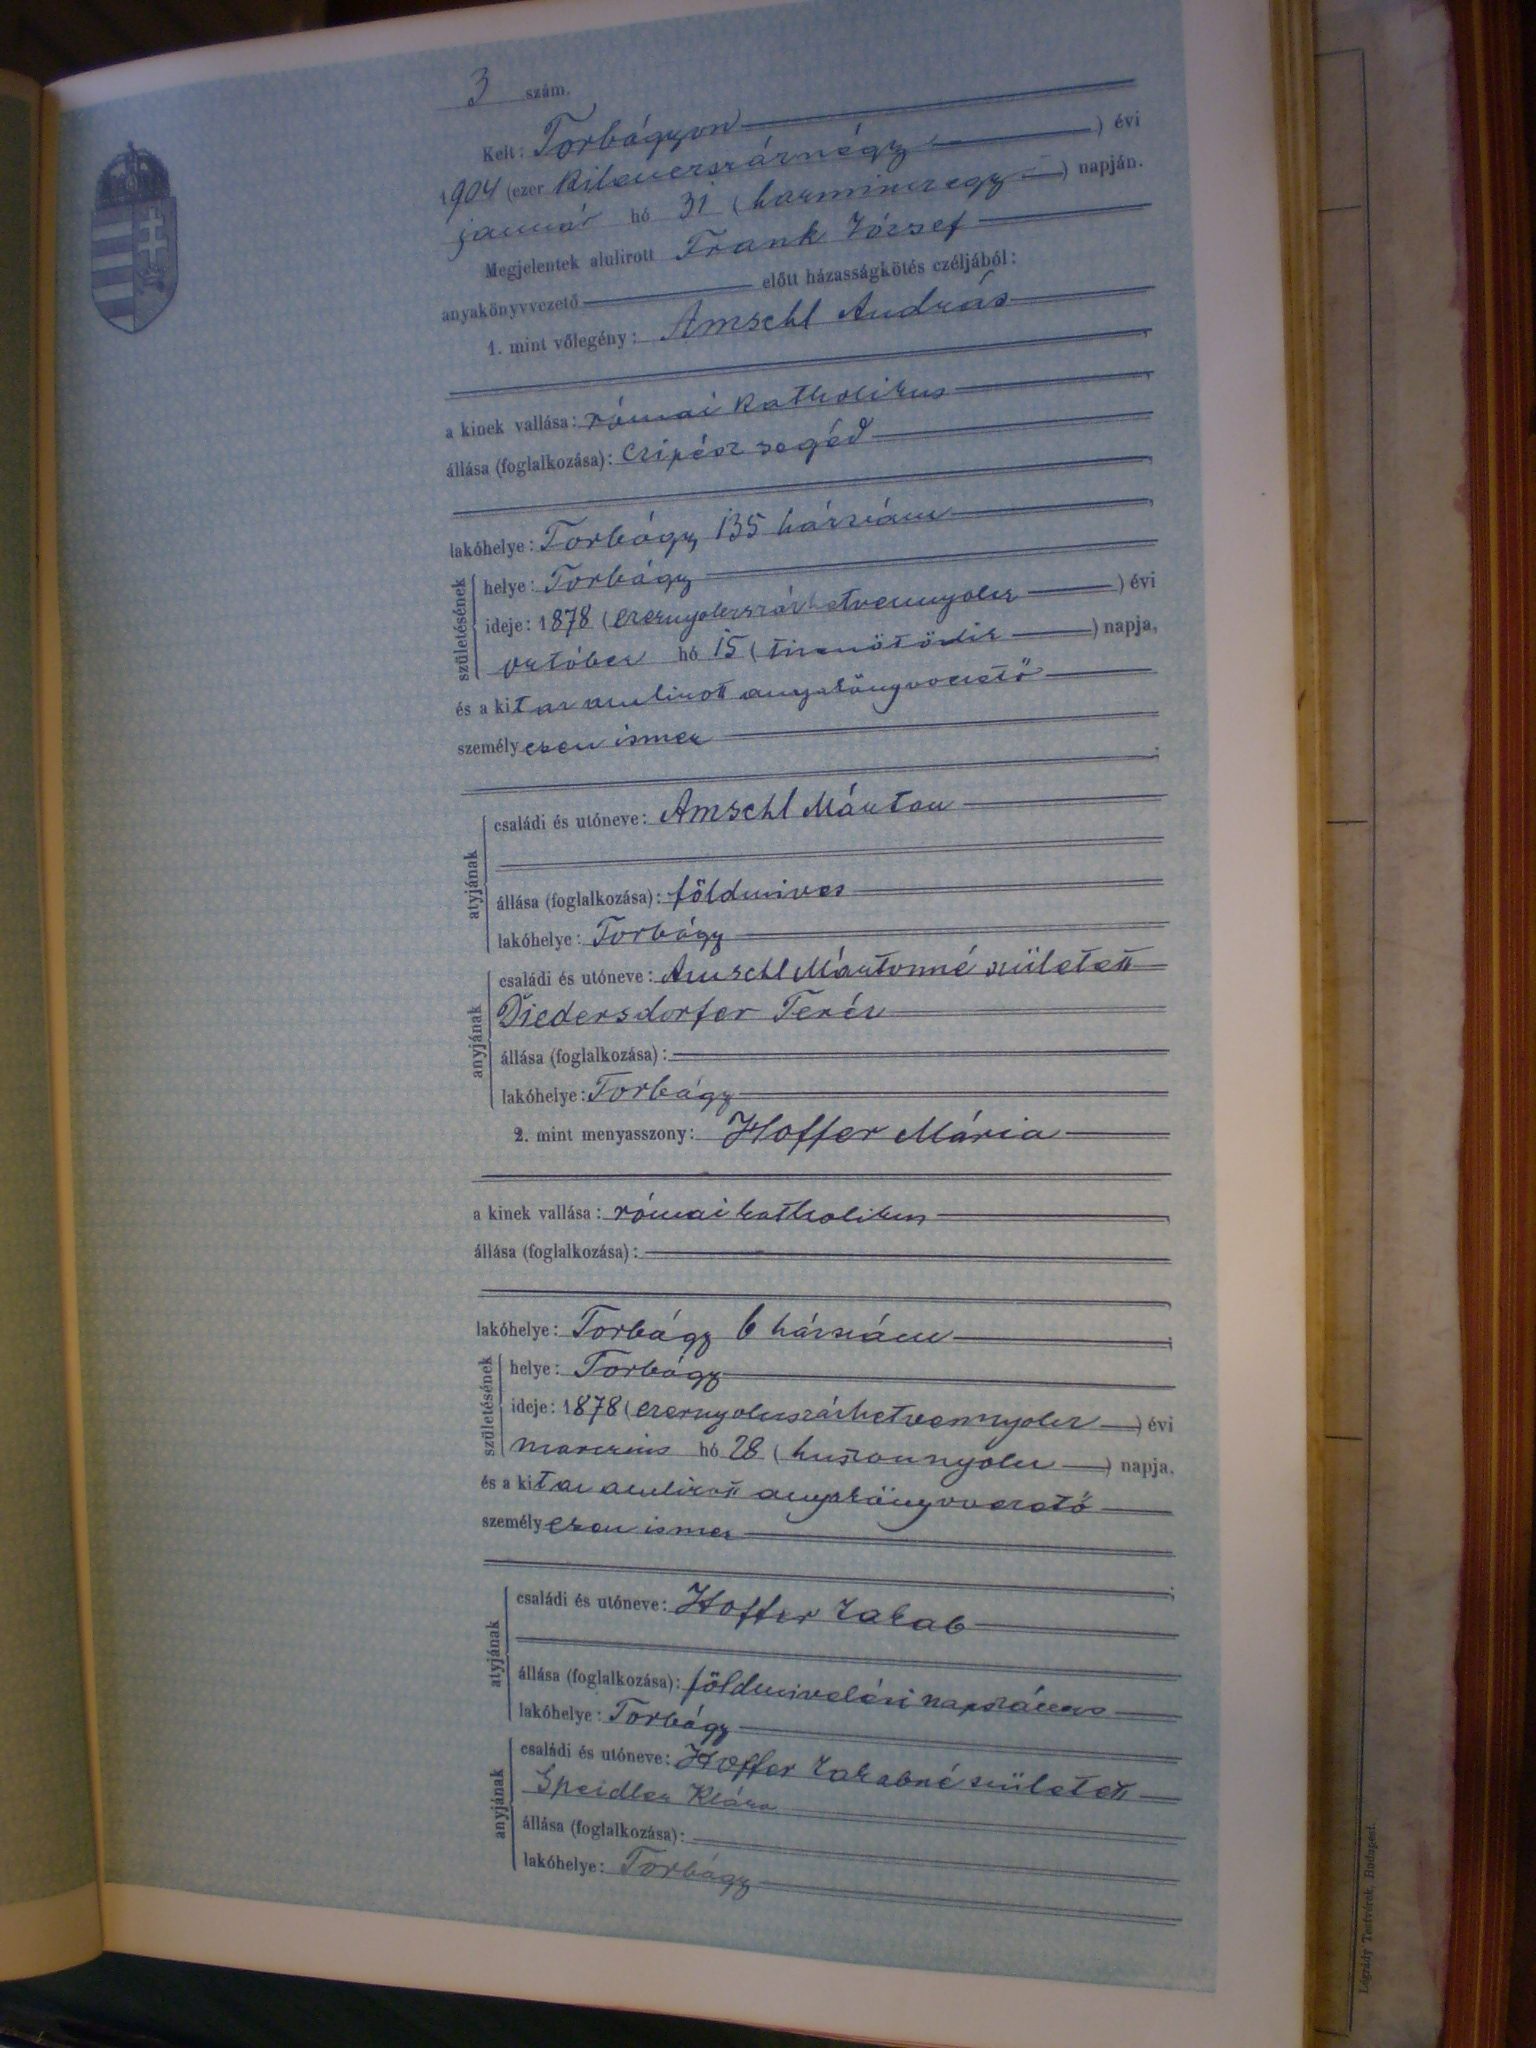 3 szám.
Kelt: Torbágyon
1904 (ezer kilenczszáznégy) évi
január hó 31 (harminczegy) napján.
Megjelentek alulirott Frank József
anyakönyvvezető előtt házasságkötés czéljából:
1. mint vőlegény: Amschl András
a kinek vallása: római katholikus
állása (foglalkozása): czipész segéd
lakóhelye: Torbágy 135 házszám
születésének
helye: Torbágy
ideje: 1878 (ezernyolczszázhetvennyolcz) évi
október hó 15 (tizenötödik) napja,
és a kit az alulirott anyakönyvvezető
személyesen ismer
atyjának
családi és utóneve: Amschl Márton
állása (foglalkozása): földmives
lakóhelye: Torbágy
anyjának
családi és utóneve: Amschl Mártonné született
Diedersdorfer Teréz
állása (foglalkozása):
lakóhelye: Torbágy
2. mint menyasszony: Hoffer Mária
a kinek vallása: római katholikus
állása (foglalkozása):
lakóhelye: Torbágy 6 házszám
születésének
helye: Torbágy
ideje: 1878 (ezernyolczszázhetvennyolcz) évi
marczius hó 28 (huszonnyolcz) napja.
és a kit az alulirott anyakönyvvezető
személyesen ismer
atyjának
családi és utóneve: Hoffer Jakab
állása (foglalkozása): földmivelési napszámos
lakóhelye: Torbágy
anyjának
családi és utóneve: Hoffer Jakabné született
Speidler Klára
állása (foglalkozása):
lakóhelye: Torbágy
Légrády Testvérek, Budapest.